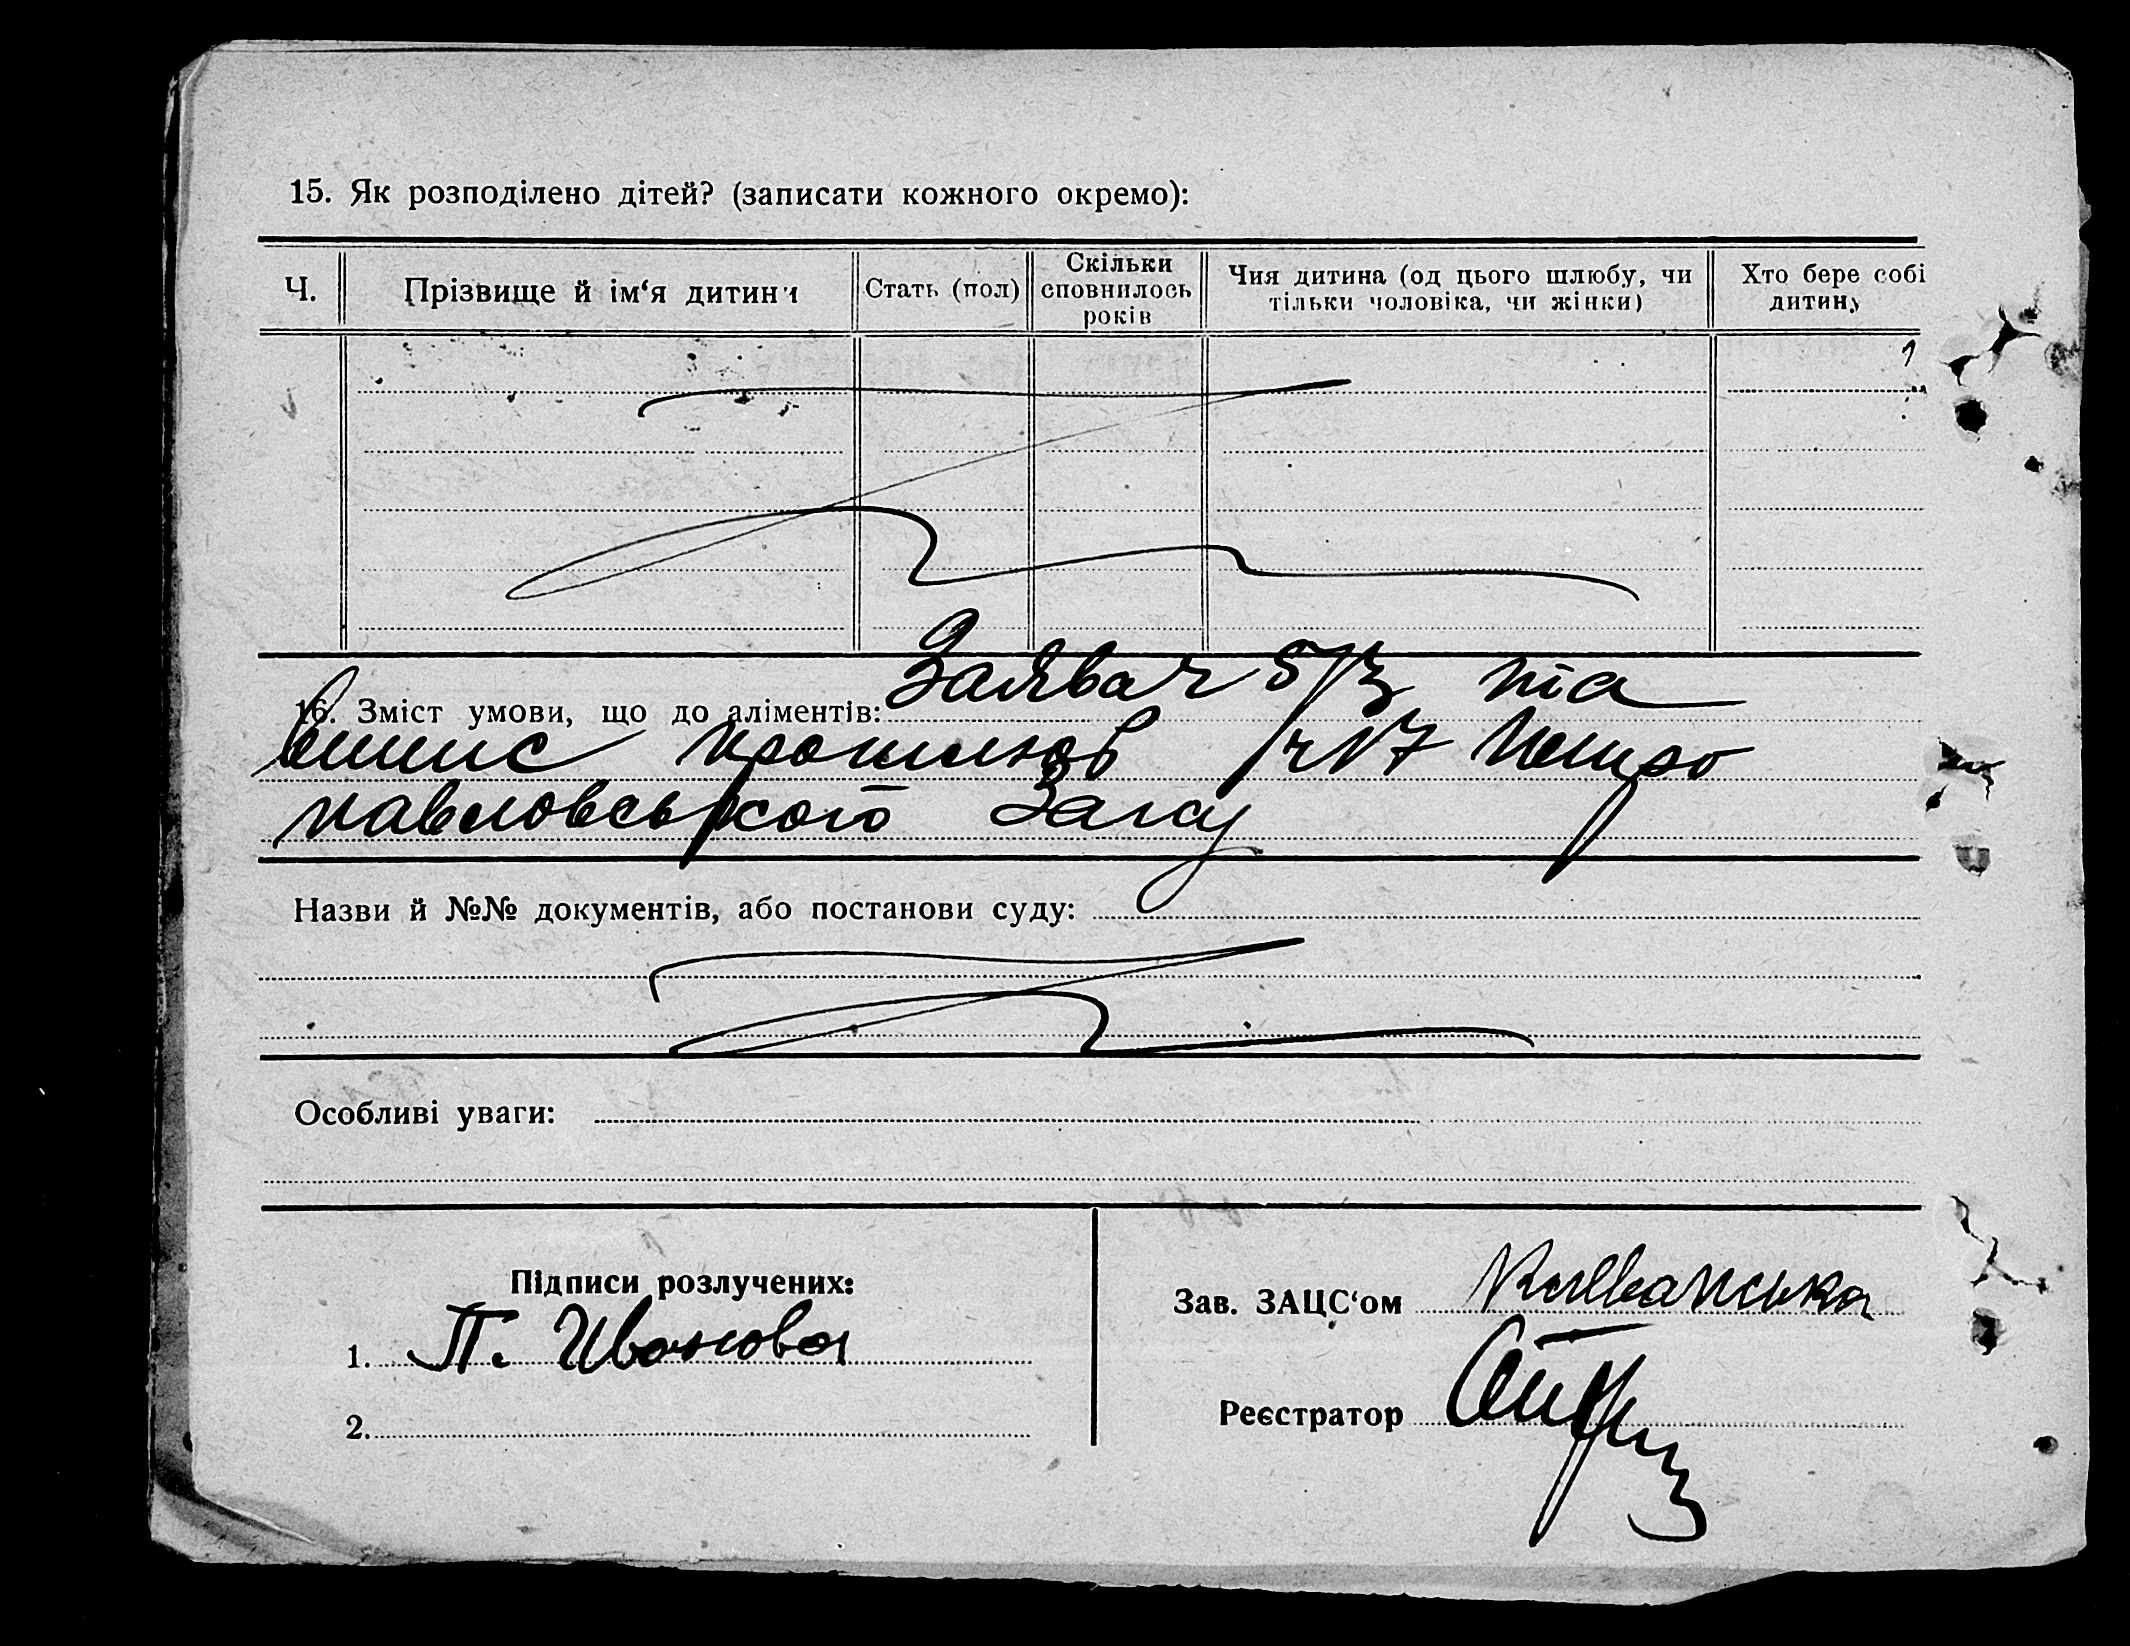 15. Як розподілено дітей? (записати кожного окремо):
Ч.
Прізвище й ім‘я дитини
Стать (пол)
Скільки сповнилось років
Чия дитина (од цього шлюбу, чи тільки чоловіка, чи жінки)
Хто бере собі дитину
16. Зміст умови, що до аліментів: Заява ч 5/3 та
випис шлюбів ч 17 Петро
павловського Загсу
Назви й №№ документів, або постанови суду:
Особливі уваги:
Підписи розлучених:
1. П. Иванова
2.
Зав. ЗАЦС‘ом
Реєстратор